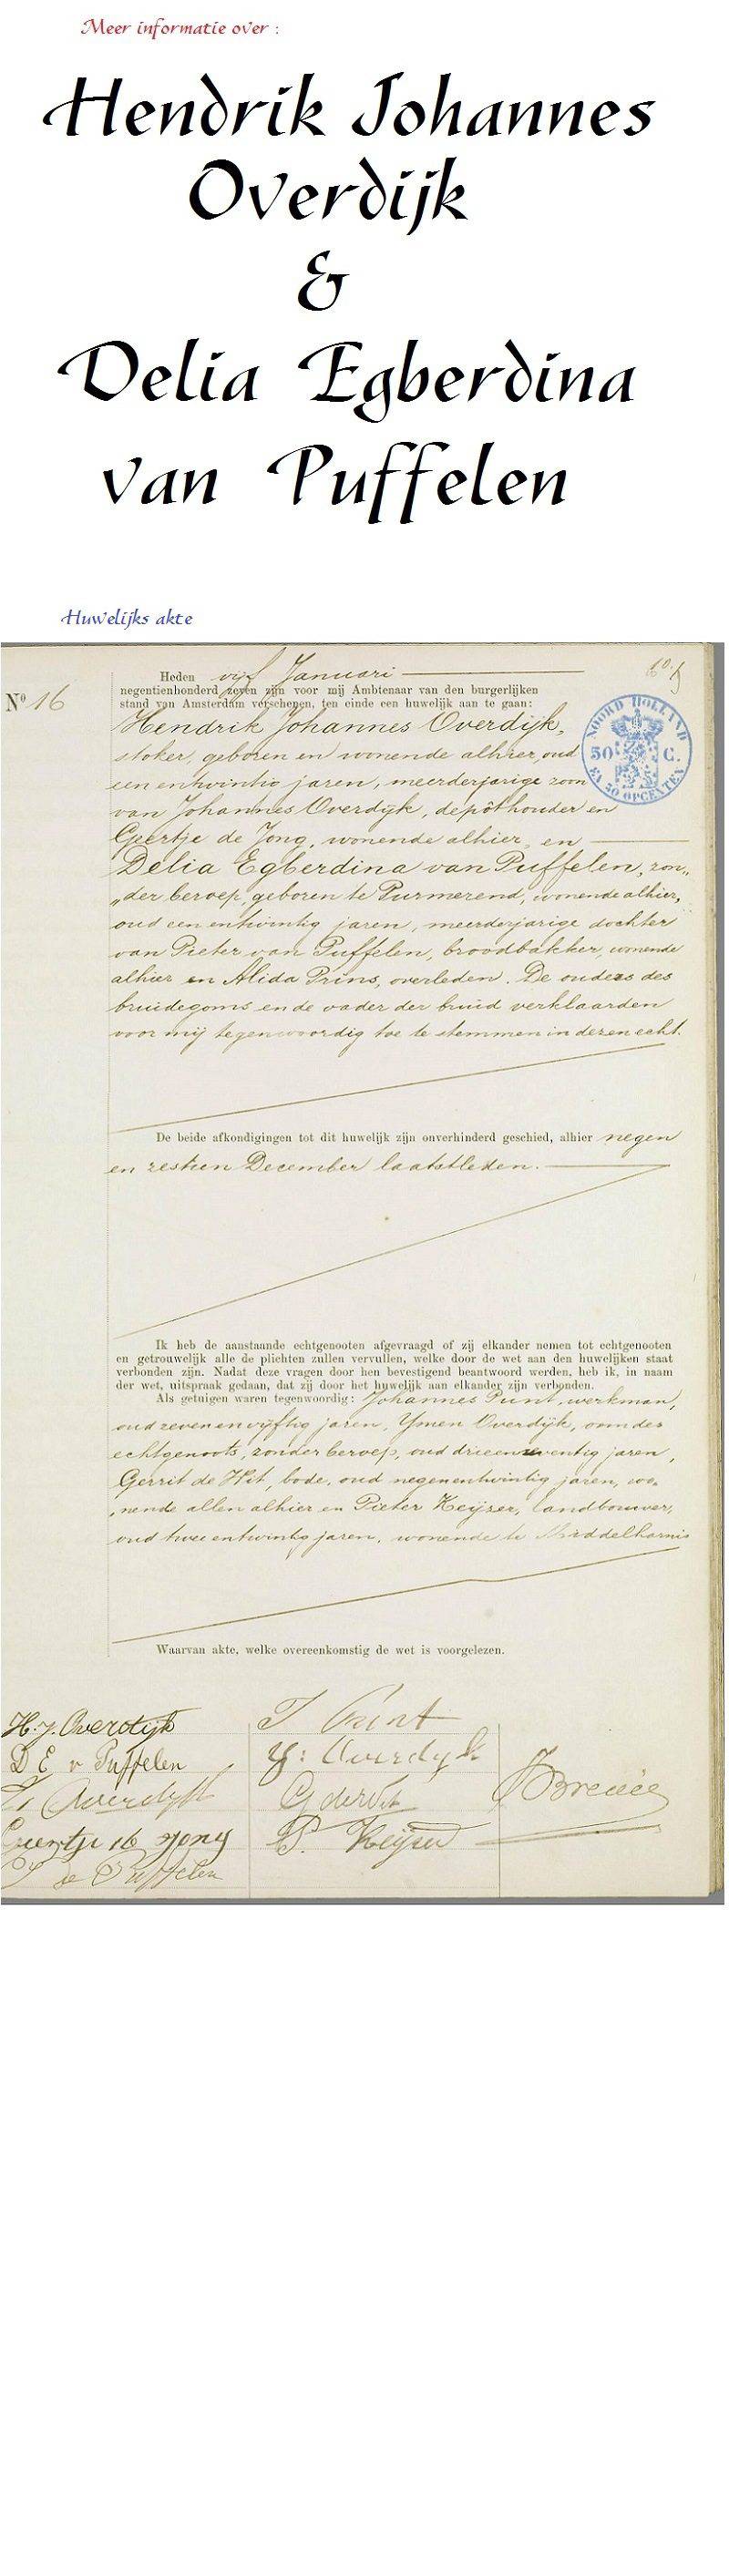 Meer informatie over :
Hendrik Johannes
Overdijk
&
Delia Egberdina
van Puffelen
Huwelijks akte
10.
Nº 16
Heden vijf Januari
negentienhonderd zeven zijn voor mij Ambtenaar van den burgerlijken
stand van Amsterdam verschenen, ten einde een huwelijk aan te gaan:
NOORD HOLLAND
50 C.
EN 50 OPCENTEN
Hendrik Johannes Overdijk,
stoker, geboren en wonende alhier, oud
een entwintig jaren, meerderjarige zoon
van Johannes Overdijk, depôthouder en
Geertje de Jong, wonende alhier, en
Delia Egberdina van Puffelen, zon„
„der beroep, geboren te Purmerend, wonende alhier,
oud een entwintig jaren, meerderjarige dochter
van Pieter van Puffelen, broodbakker, wonende
alhier en Alida Prins, overleden. De ouders des
bruidegoms en de vader der bruid verklaarden
voor mij tegenwoordig toe te stemmen in dezen echt.
De beide afkondigingen tot dit huwelijk zijn onverhinderd geschied, alhier negen
en zestien December laatstleden.
Ik heb de aanstaande echtgenooten afgevraagd of zij elkander nemen tot echtgenooten
en getrouwelijk alle de plichten zullen vervullen, welke door de wet aan den huwelijken staat
verbonden zijn. Nadat deze vragen door hen bevestigend beantwoord werden, heb ik, in naam
der wet, uitspraak gedaan, dat zij door het huwelijk aan elkander zijn verbonden.
Als getuigen waren tegenwoordig: Johannes Punt, werkman,
oud zevenenvijftig jaren, Ymen Overdijk, oom des
echtgenoots, zonder beroep, oud drieenzeventig jaren,
Gerrit de Wit, bode, oud negenentwintig jaren, wo„
„nende allen alhier en Pieter Keijzer, landbouwer,
oud twee entwintig jaren, wonende te Middelharnis
Waarvan akte, welke overeenkomstig de wet is voorgelezen.
H. J. Overdijk
D E v Puffelen
Overdijk
Geertje de Jong
Puffelen
J Punt
Y: Overdijk
G de Wit
P. Keijzer